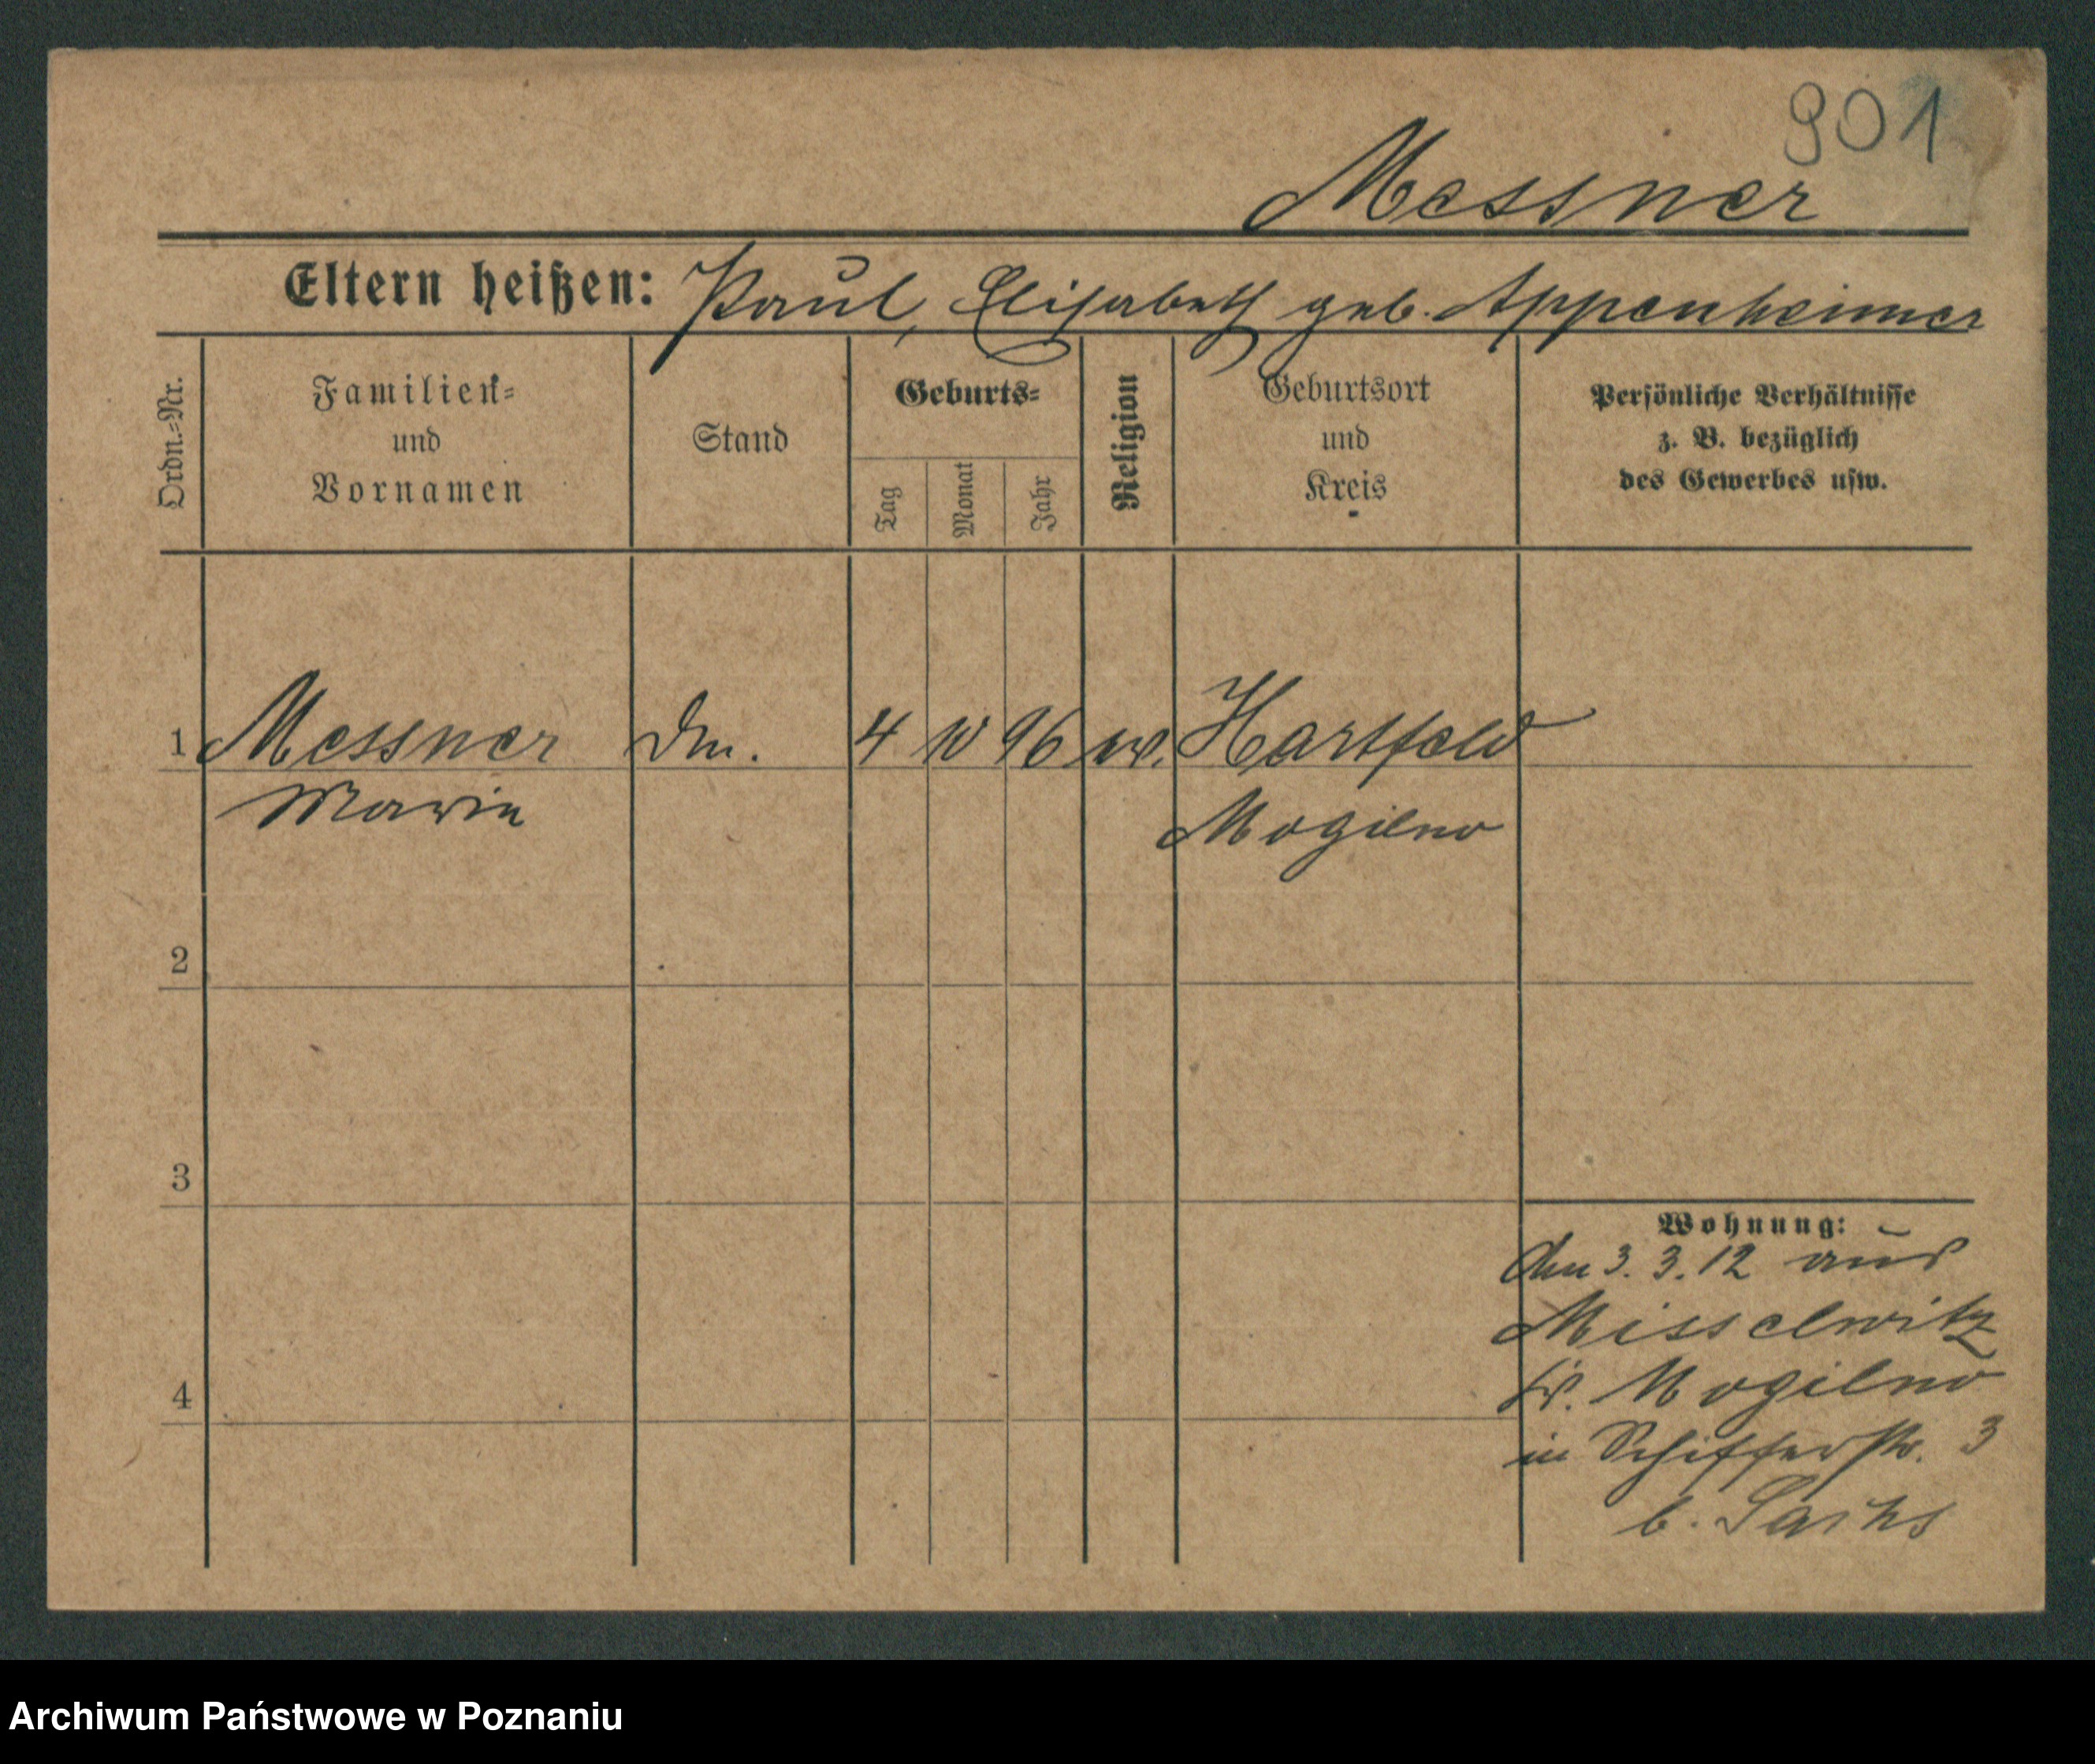 901
Messner
Eltern heißen: Paul, Elisabeth geb. Appenheimer
Ordn.-Nr.
Familien- und Vornamen
Stand
Geburts-
Tag
Monat
Jahr
Religion
Geburtsort und Kreis
Persönliche Verhältnisse z. B. bezüglich des Gewerbes usw.
1 Messner 4 10 96 ev. Hartfeld
Marie Mogilno
2
3
Wohnung:
den 3. 3. 12 aus
Misselwitz
Kr. Mogilno
4
in Schifferstr. 3
b. Sachs
Archiwum Państwowe w Poznaniu